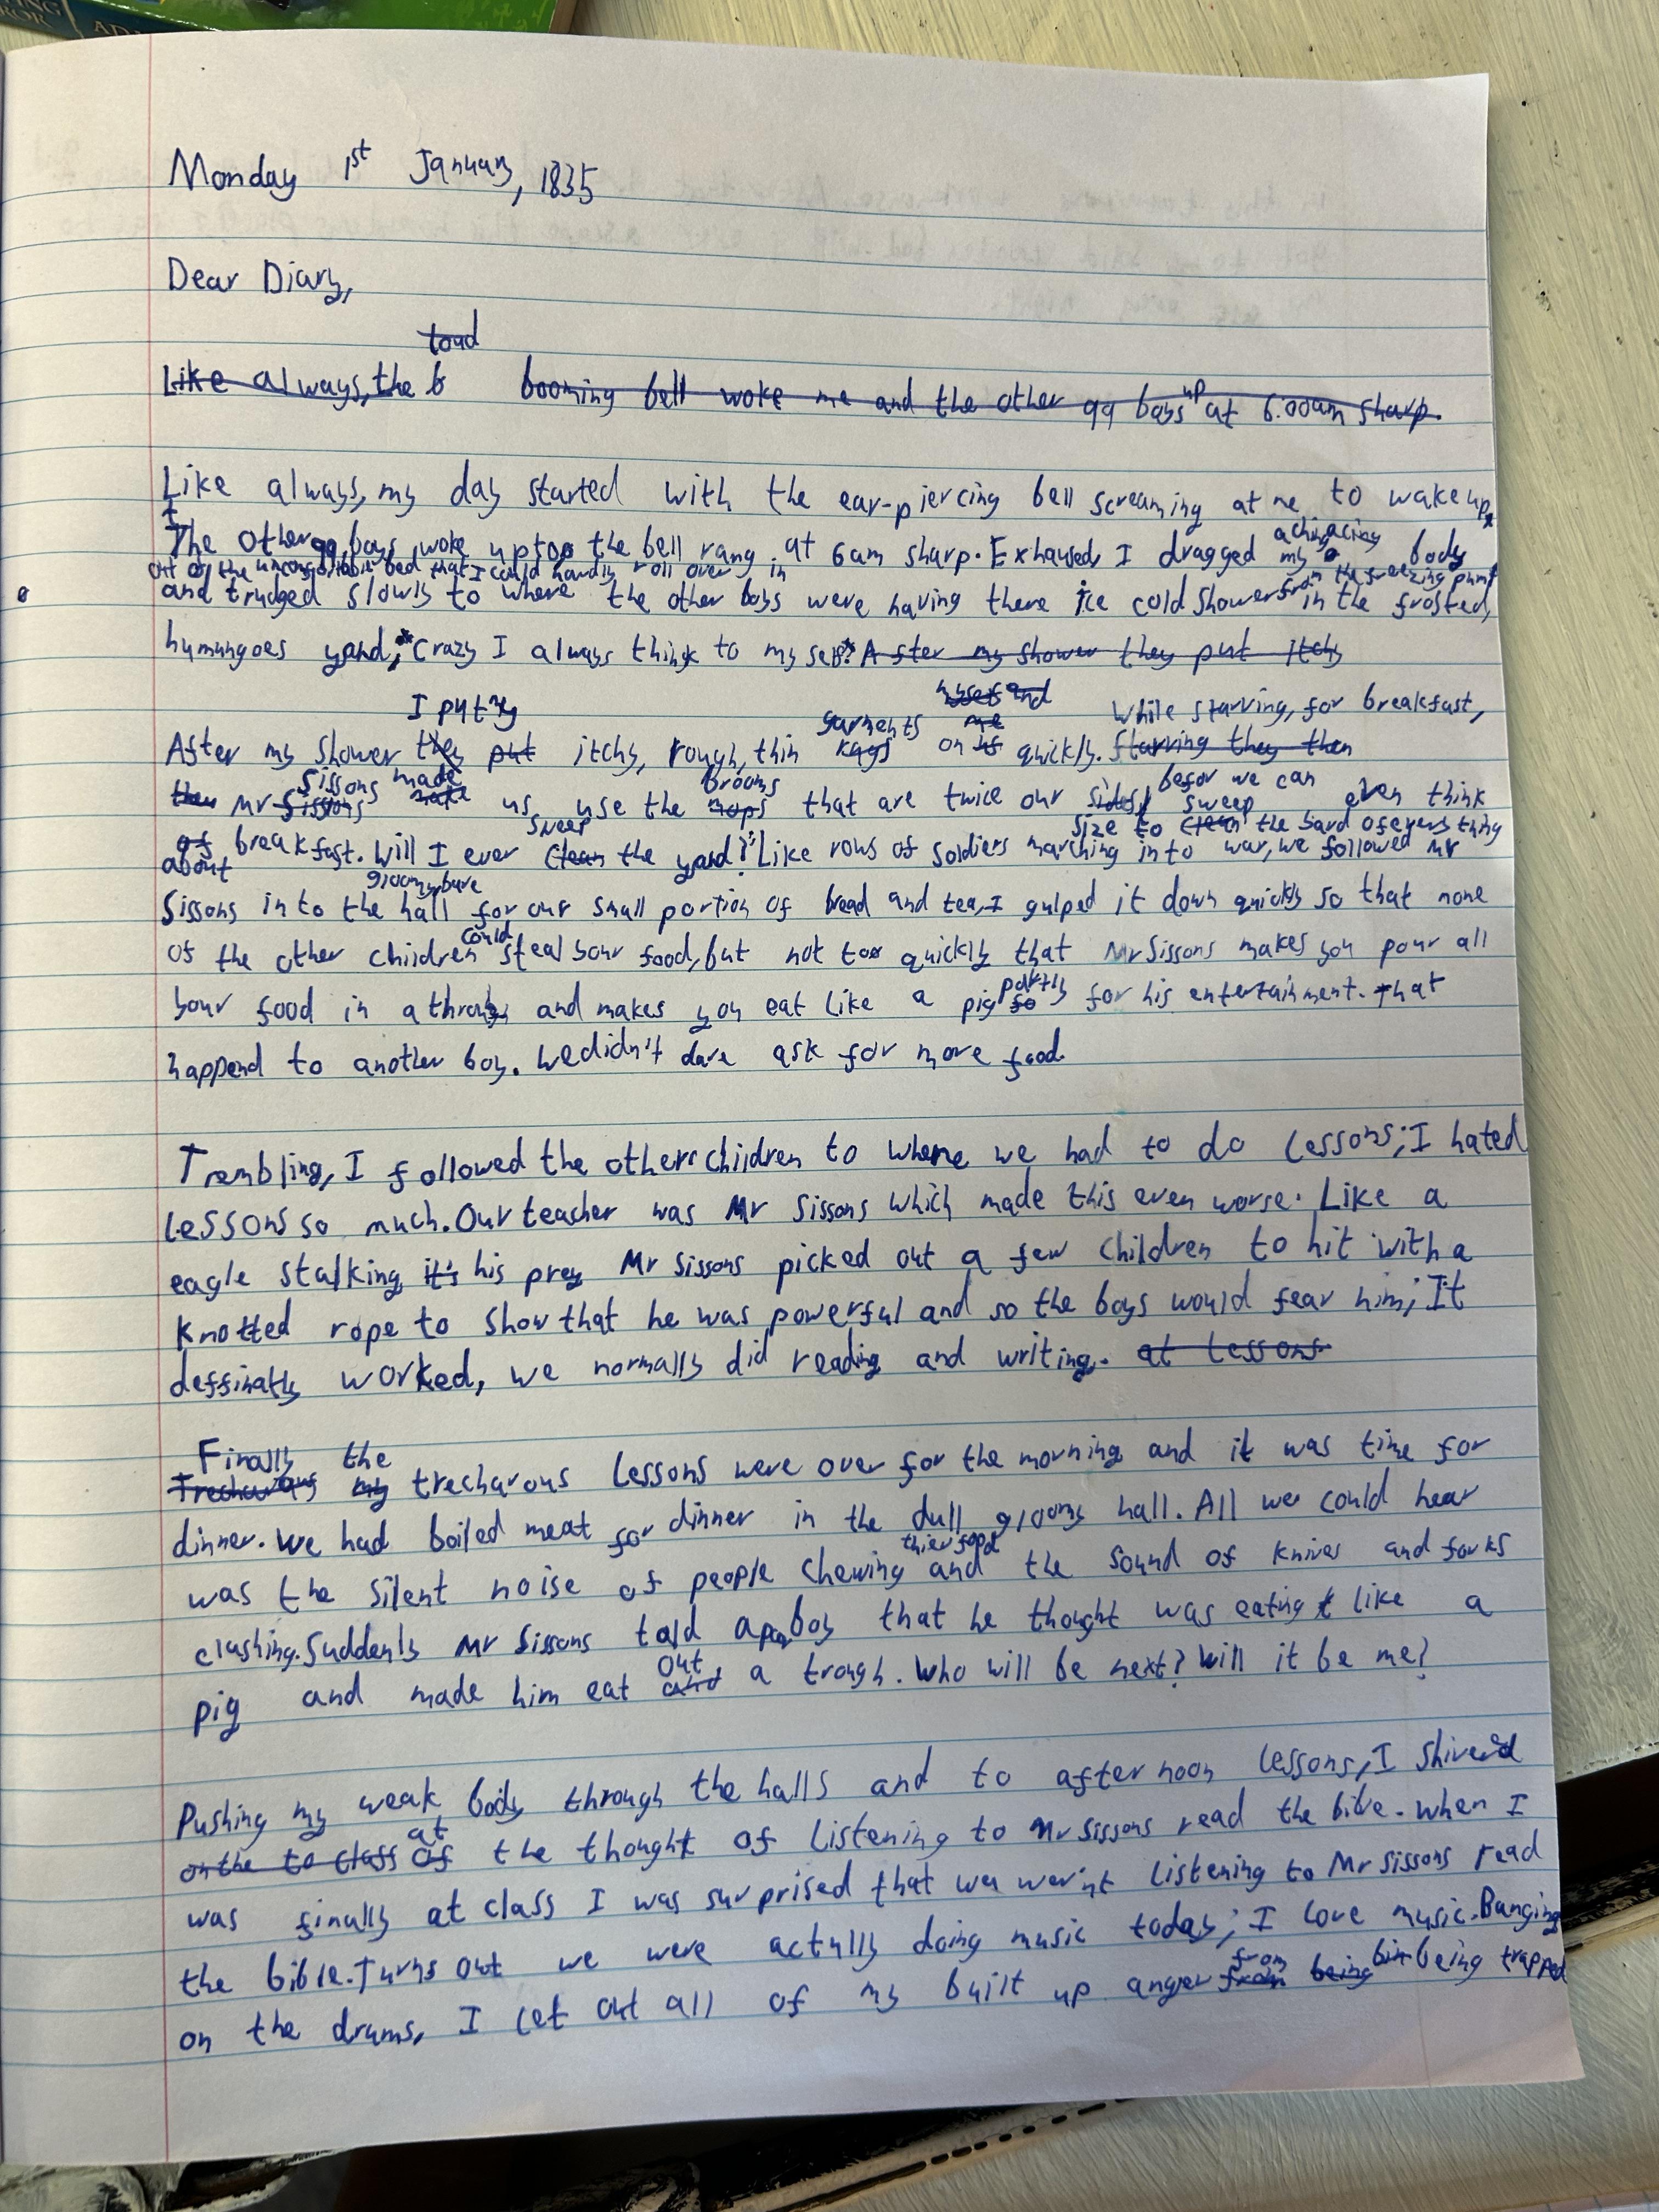 Monday 1st January, 1835
Dear Diary,
loud
Like always, the b booming bell woke me and the other 99 boys up at 6:00am sharp.
Like always, my day started with the ear-piercing bell screaming at me to wake up,
The other 99 boys woke up too the bell rang at 6am sharp. Exhaused, I dragged my aching body
out of the uncomfortable bed that I could hardly roll over in
and trudged slowly to where the other boys were having there ice cold shower from the freezing pump in the frosted,
humungoes yard; "Crazy I always think to my self". After my shower they put itchy
I put my garments myself and me While starving, for breakfast,
After my shower they put itchy, rough, thin rags on us quickly. Starving they then
then Mr Sissons Sissons made make us, use the brooms mops that are twice our sides size to sweep clean the yard before we can even think
of about breakfast. Will I ever sweep clean the yard of everything? Like rows of soldiers marching into war, we followed Mr
Sissons in to the gloomy, bare hall for our small portion of bread and tea, I gulped it down quickly so that none
of the other children could steal your food, but not too quickly that Mr Sissons makes you pour all
your food in a and makes you eat like a pig partly fo for his entertainment. That
happend to another boy. We didn't dare ask for more food.
Trembling, I followed the other children to where we had to do lessons; I hated
lessons so much. Our teacher was Mr Sissons which made this even worse. Like a
eagle stalking it's his prey Mr Sissons picked out a few children to hit with a
knotted rope to show that he was powerful and so the boys would fear him; It
deffinatly worked, we normally did reading and writing. at lessons
Finally the
Trecharous my trecharous lessons were over for the morning and it was time for
dinner. We had boiled meat for dinner in the dull gloomy hall. All we could hear
was the silent noise of people chewing thier food and the sound of knives and forks
clashing. Suddenly Mr Sissons told a boy that he thought was eating like a
pig and made him eat out and a trough. Who will be next? Will it be me?
Pushing my weak body through the halls and to afternoon lessons, I shivered
on the to class of at the thought of listening to Mr Sissons read the bible. When I
was finally at class I was surprised that we wer'nt listening to Mr Sissons read
the bible. Turns out we were actully doing music today; I love music. Banging
on the drums, I let out all of my built up anger from from being being trapped